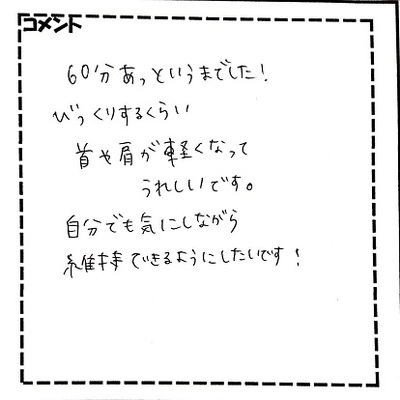 コメント
60分あっというまでした!
びっくりするくらい
首や肩が軽くなって
うれしいです。
自分でも気にしながら
維持できるようにしたいです!